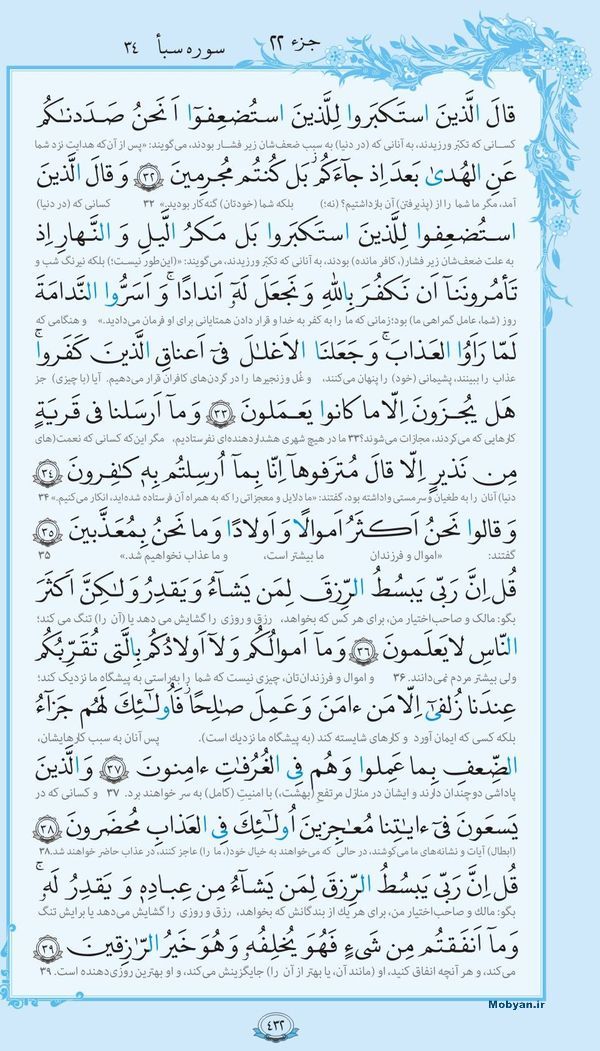 جزء ۲۲ سوره سبأ ۳٤
قالَ الَّذینَ استَکبَروا لِلَّذینَ استُضعِفوٓا اَ نَحنُ صَدَدناکُم
کسانی که تکبّر ورزیدند، به آنانی که (در دنیا) به سبب ضعف‌شان زیر فشار بودند، می‌گویند: «پس از آن‌که هدایت نزد شما
عَنِ الهُدیٰ بَعدَ اِذ جآءَکُم بَل کُنتُم مُجرِمینَ ﴿۳۲﴾ وَ قالَ الَّذینَ
آمد، مگر ما شما را از (پذیرفتن) آن بازداشتیم؟ (نه؛) بلکه شما (خودتان) گنه‌کار بودید.» ۳۲ کسانی که (در دنیا)
استُضعِفوا لِلَّذینَ استَکبَروا بَل مَکرُ الَّیلِ وَ النَّهارِ اِذ
به علت ضعف‌شان زیر فشار(، کافر مانده) بودند، به آنانی که تکبّر ورزیدند، می‌گویند: «(این‌طور نیست؛) بلکه نیرنگ شب و
تَأمُرونَنآ اَن نَکفُرَ بِاللهِ وَ نَجعَلَ لَهٓ اَندادًا ۚ وَ اَسَرُّوا النَّدامَةَ
روز (شما، عامل گمراهی ما) بود؛ زمانی که ما را به کفر به خدا و قرار دادن همتایانی برای او فرمان می‌دادید.» و هنگامی که
لَمّا رَاَوُا العَذابَ ۚ وَ جَعَلنَا الاَغلالَ فیٓ اَعناقِ الَّذینَ کَفَروا ۚ
عذاب را ببینند، پشیمانی (خود) را پنهان می‌کنند، و غُل و زنجیرها را در گردن‌های کافران قرار می‌دهیم. آیا (با چیزی) جز
هَل یُجزَونَ اِلّا ما کانوا یَعمَلونَ ﴿۳۳﴾ وَ مآ اَرسَلنا فی قَریَةٍ
کارهایی که می‌کردند، مجازات می‌شوند؟ ۳۳ ما در هیچ شهری هشداردهنده‌ای نفرستادیم، مگر این‌که کسانی که نعمت(های
مِن نَذیرٍ اِلّا قالَ مُترَفوهآ اِنّا بِمآ اُرسِلتُم بِهٖ کٰفِرونَ ﴿۳٤﴾
دنیا) آنان را به طغیان و سرمستی واداشته بود، گفتند: «ما دلایل و معجزاتی را که به همراه آن فرستاده شده‌اید، انکار می‌کنیم.» ۳٤
وَ قالوا نَحنُ اَکثَرُ اَموالًا وَ اَولادًا وَ ما نَحنُ بِمُعَذَّبینَ ﴿۳۵﴾
گفتند: «اموال و فرزندان ما بیشتر است، و ما عذاب نخواهیم شد.» ۳۵
قُل اِنَّ رَبّی یَبسُطُ الرِّزقَ لِمَن یَشآءُ وَ یَقدِرُ وَ لٰکِنَّ اَکثَرَ
بگو: مالک و صاحب‌اختیار من، برای هر کس که بخواهد، رزق و روزی را گشایش می‌دهد یا (آن را) تنگ می‌کند؛
النّاسِ لا یَعلَمونَ ﴿۳۶﴾ وَ مآ اَموالُکُم وَ لآ اَولادُکُم بِالَّتی تُقَرِّبُکُم
ولی بیشتر مردم نمی‌دانند. ۳۶ و اموال و فرزندان‌تان، چیزی نیست که شما را به‌راستی به پیشگاه ما نزدیک کند؛
عِندَنا زُلفیٰٓ اِلّا مَن ءامَنَ وَ عَمِلَ صٰلِحًا فَاُولٰٓئِکَ لَهُم جَزآءُ
بلکه کسی که ایمان آورد و کارهای شایسته کند (به پیشگاه ما نزدیك است). پس آنان به سبب کارهایشان،
الضِّعفِ بِما عَمِلوا وَ هُم فِی الغُرُفاتِ ءامِنونَ ﴿۳۷﴾ وَ الَّذینَ
پاداشی دوچندان دارند و ایشان در منازل مرتفعِ (بهشت،) با امنیتِ (کامل) به سر خواهند برد. ۳۷ و کسانی که در
یَسعَونَ فیٓ ءایٰتِنا مُعٰجِزینَ اُولٰٓئِکَ فِی العَذابِ مُحضَرونَ ﴿۳۸﴾
(ابطال) آیات و نشانه‌های ما می‌کوشند، در حالی که می‌خواهند به خیال خود(، ما را) عاجز کنند، در عذاب حاضر خواهند شد. ۳۸
قُل اِنَّ رَبّی یَبسُطُ الرِّزقَ لِمَن یَشآءُ مِن عِبادِهٖ وَ یَقدِرُ لَهٗ ۚ
بگو: مالك و صاحب‌اختیار من، برای هر یك از بندگانش که بخواهد، رزق و روزی را گشایش می‌دهد یا برایش تنگ
وَ مآ اَنفَقتُم مِن شَیءٍ فَهُوَ یُخلِفُهٗ وَ هُوَ خَیرُ الرّٰزِقینَ ﴿۳۹﴾
می‌کند، و هر آنچه انفاق کنید، او (مانند آن، یا بهتر از آن را) جایگزینش می‌کند، و او بهترین روزی‌دهنده است. ۳۹
Mobyan.ir
٤۳۲